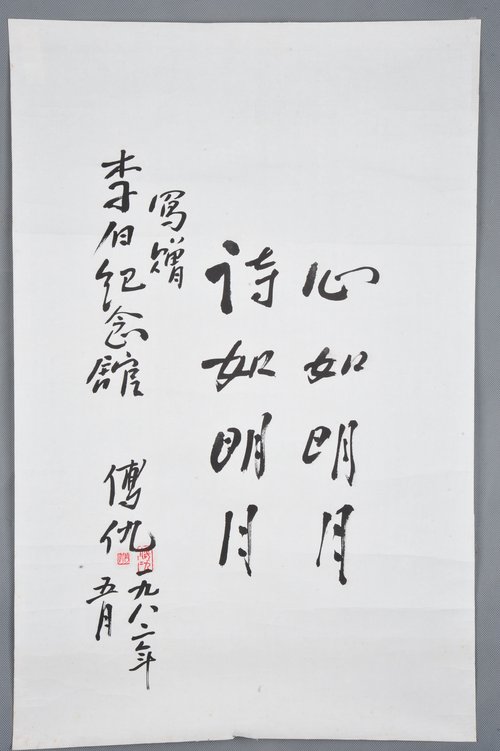 心如明月
诗如明月
寫贈
李白纪念舘
傅仇
一九八二年
五月